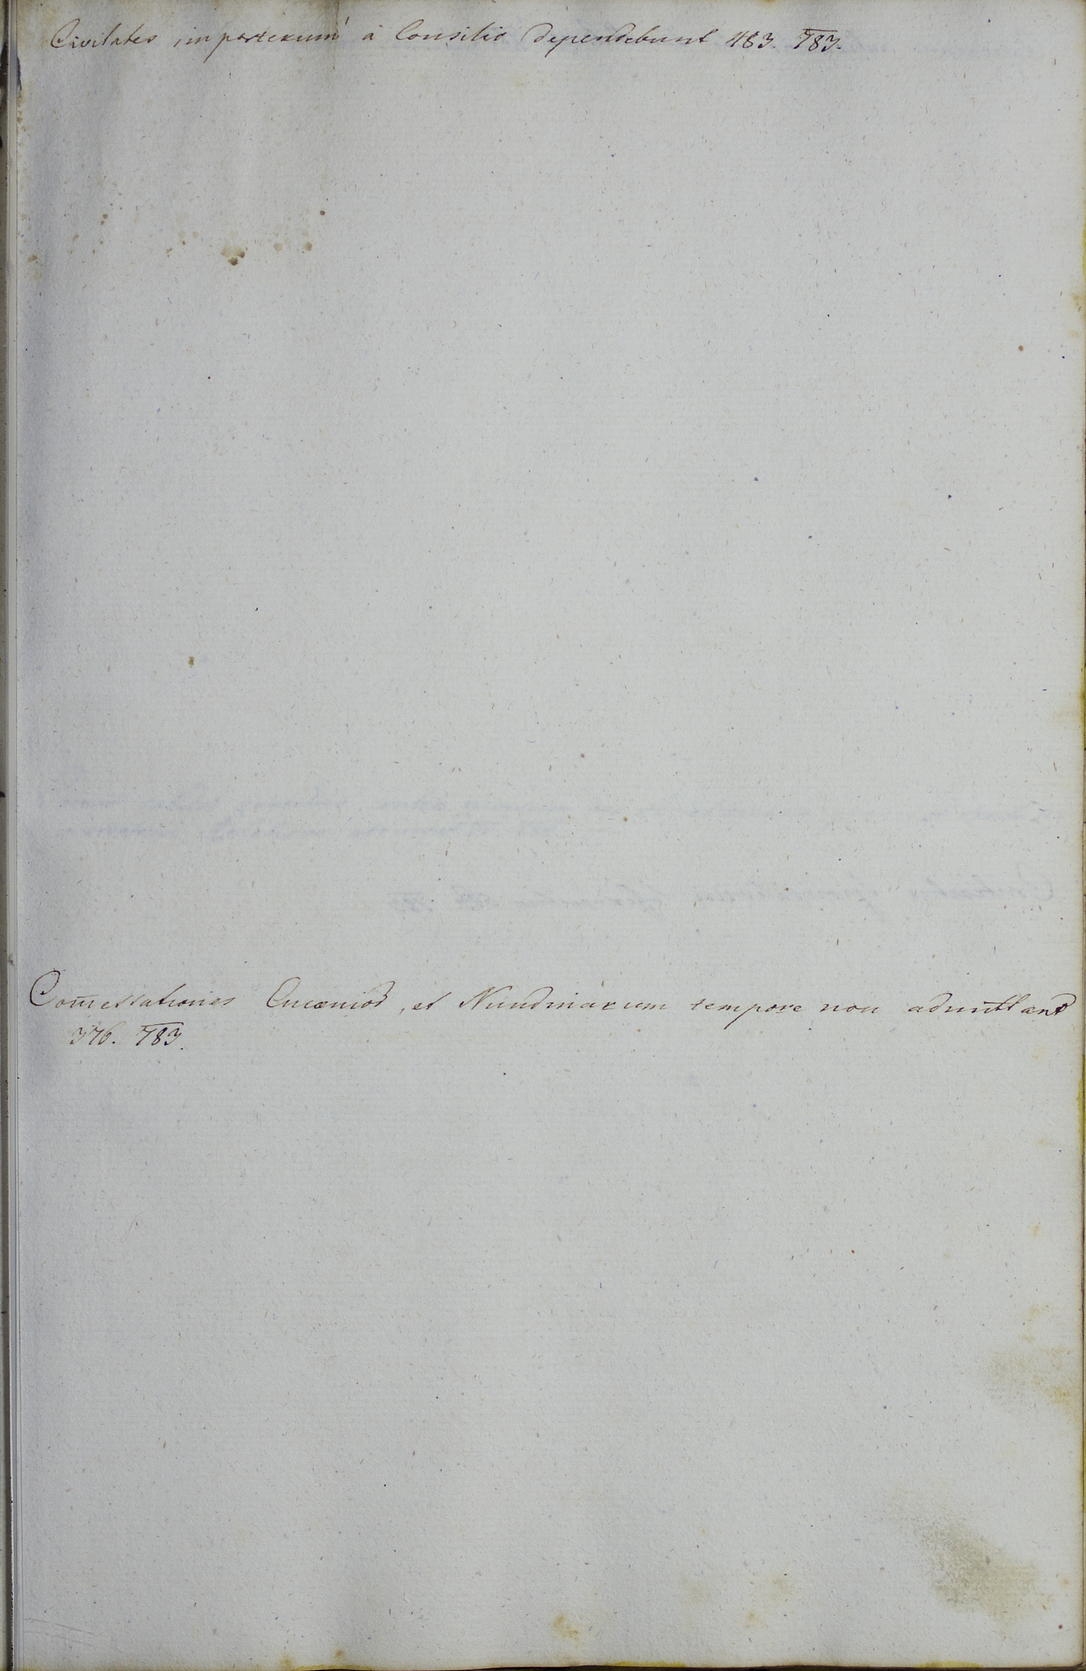 Civitates imposterum à Consilio dependebunt 483. 783.
Comessationes Encænior, et Nundinarum tempore non admittant
376. 783.